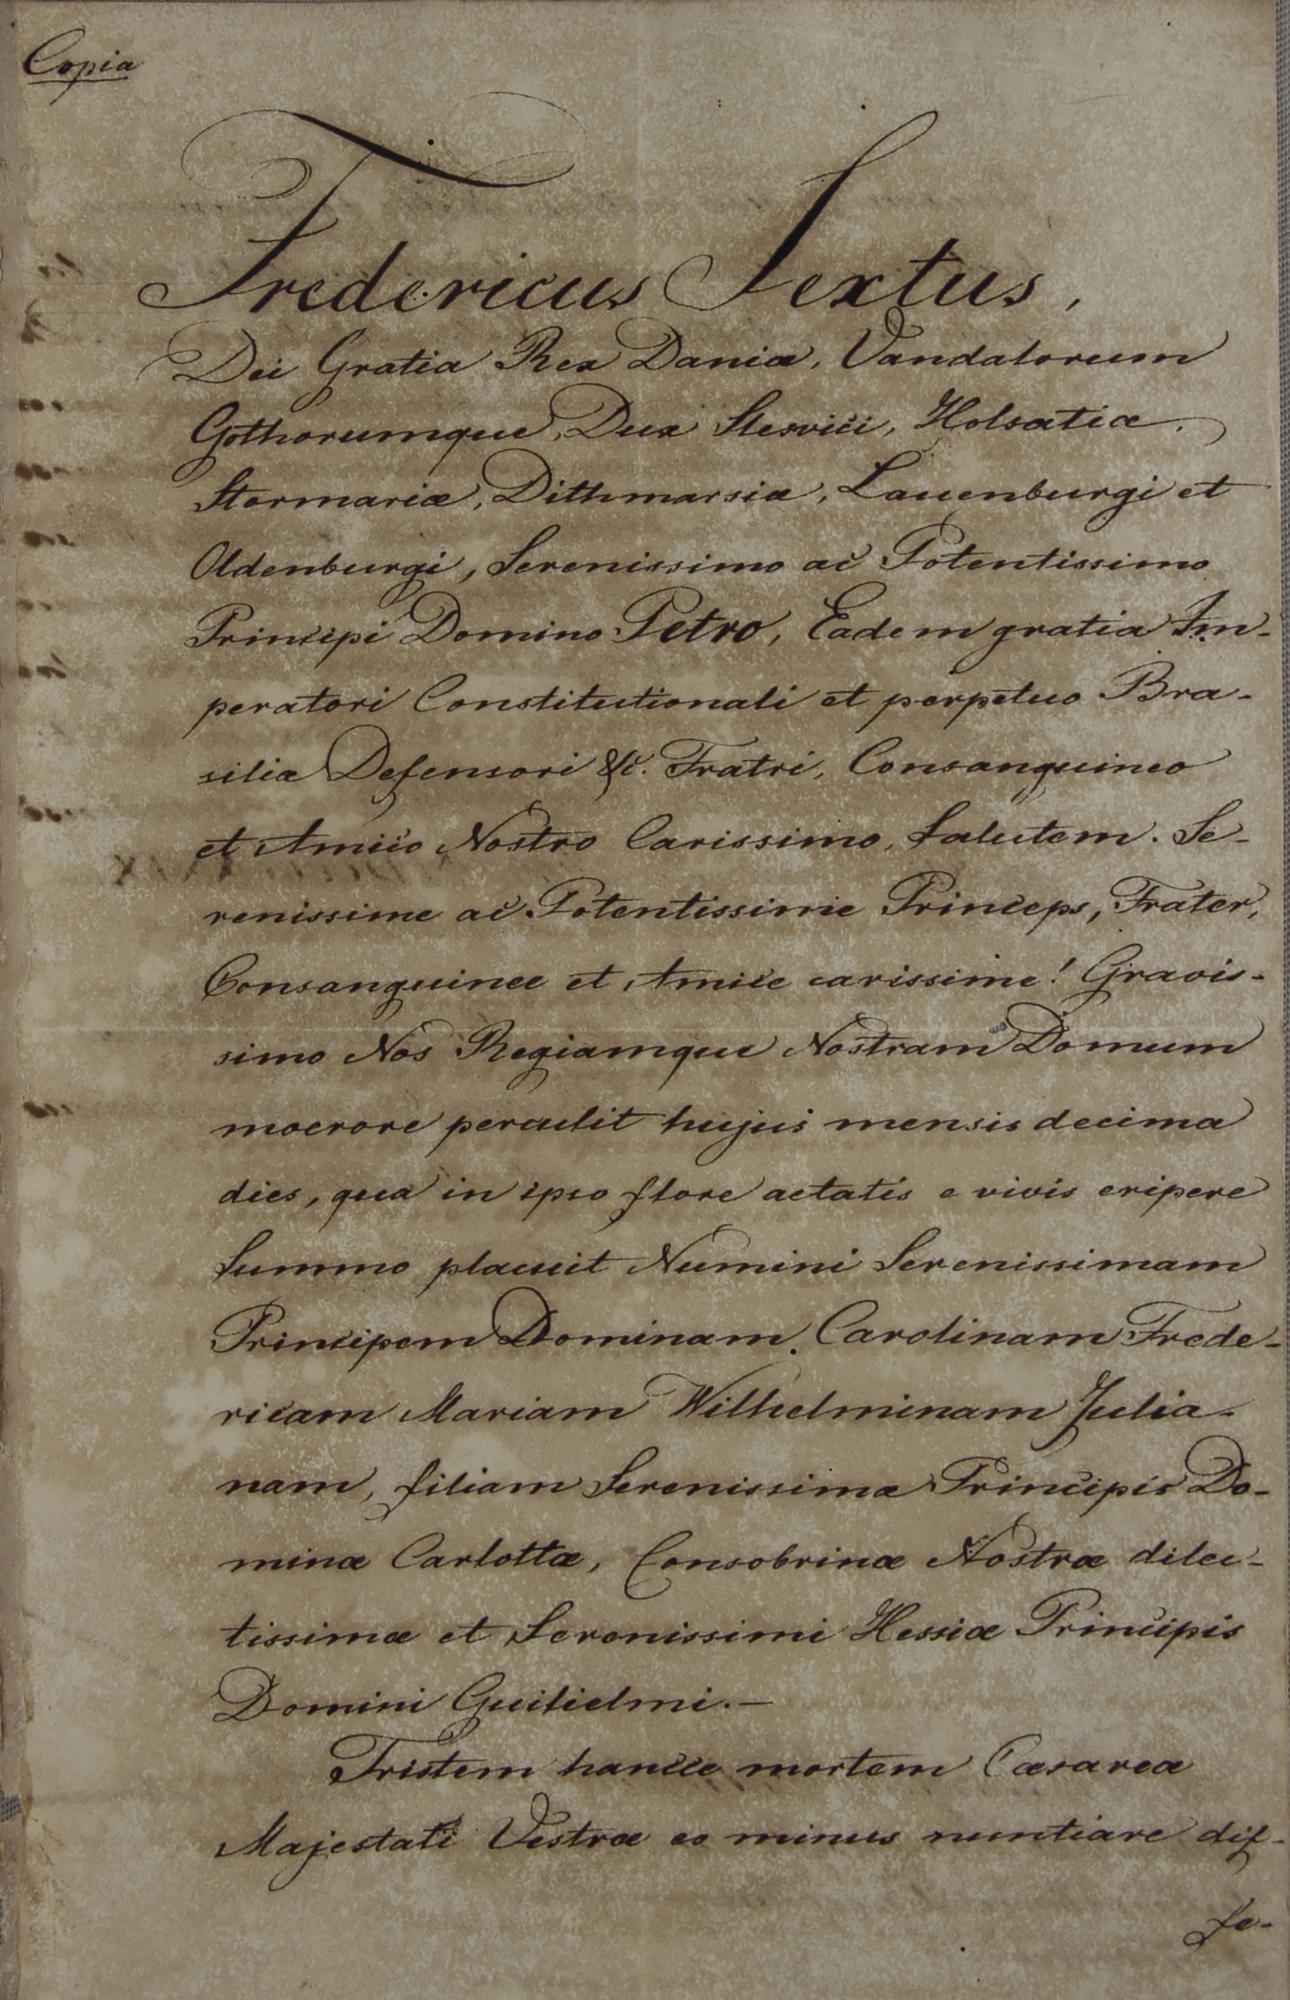 Copia
Fredericus Sextus,
Dei Gratia Rex Daniæ, Vandalorum
Gothorumque, Dux Slesvici, Holsatiæ,
Stormariæ, Dithmarsiæ, Lauenburgi et
Oldenburgi, Serenissimo ac Potentissimo
Principi Domino Petro, Eadem gratia Im-
peratori Constitutionali et perpetuo Bra-
siliæ Defensori &c. Fratri, Consanguineo
et Amico Nostro Carissimo, Salutem. Se-
renissime ac Potentissime Princeps, Frater,
Consanguinee et Amice carissime! Gravis-
simo Nos Regiamque Nostram Domum
moerore perculit hujus mensis decima
dies, qua in ipso flore aetatis e vivis eripere
Summo placuit Numini Serenissimam
Principem Dominam, Carolinam Frede-
ricam Mariam Wilhelminam Julia-
nam, filiam Serenissimæ Principis Do-
minæ Carlottæ, Consobrinæ Nostræ dilec-
tissimæ et Serenissimi Hessiæ Principis
Domini Guilielmi.—
Tristem hancce mortem Cæsareæ
Majestati Vestræ eo minus nuntiare dif-
fe-